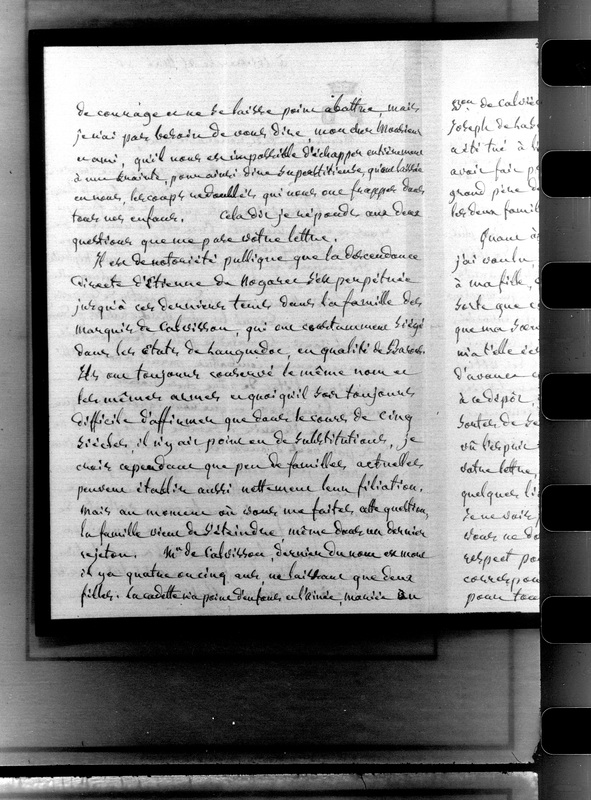 de courage et ne se laisse point abattre, mais
je n'ai pas besoin de vous dire, mon cher Monsieur
et ami, qu'il nous est impossible d'échapper entièrement
à une crainte, pour ainsi dire superstitieuse, qu'ont laissée
en nous, les coups redoublés qui nous ont frappés dans
tous nos enfans. Cela dit je réponds aux deux
questions que me pose votre lettre.
Il est de notoriété publique que la descendance
directe d'Etienne de Nogaret s'est perpétuée
jusqu'à ces derniers tems dans la famille des
marquis de Calvisson, qui ont constamment siégé
dans les états de Languedoc, en qualité de Barons.
Ils ont toujours conservé le même nom et
les mêmes armes et quoiqu'il soit toujours
difficile d'affirmer que dans le cours de cinq
siècles, il n'y ait point eu de substitutions, je
crois cependant que peu de familles actuelles
peuvent établir aussi nettement leur filiation.
Mais au moment où vous me faites cette question,
la famille vient de s'éteindre, même dans un dernier
rejeton. Mr de Calvisson, dernier du nom est mort
il y a quatre ou cinq ans, ne laissant que deux
filles. La cadette n'a point d'enfans et l'ainée, mariée au
de Calvis
Joseph de
a été tué à l
avoir fait p
grand père d
les deux famil
Quant à
j'ai voulu
à ma fille,
sorte que c
que ma Soeu
m'a t'elle éc
d'avance
à ce dépôt
sortes de
où l'esprit
votre lettre,
quelques li
Je ne vois
vous ne do
respect po
correspon
pour tou